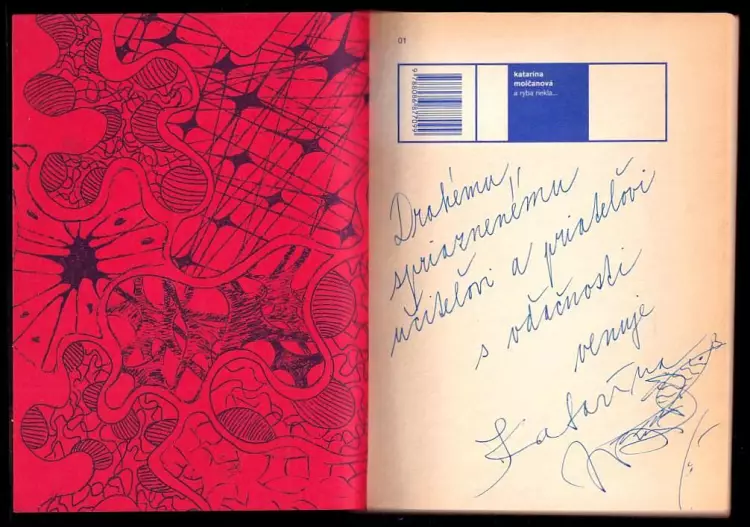 01
katarína
molčanová
a ryba riekla...
Drahému,
spriaznenému
učiteľovi a priateľovi
s vďačnosti
venuje
Katarína